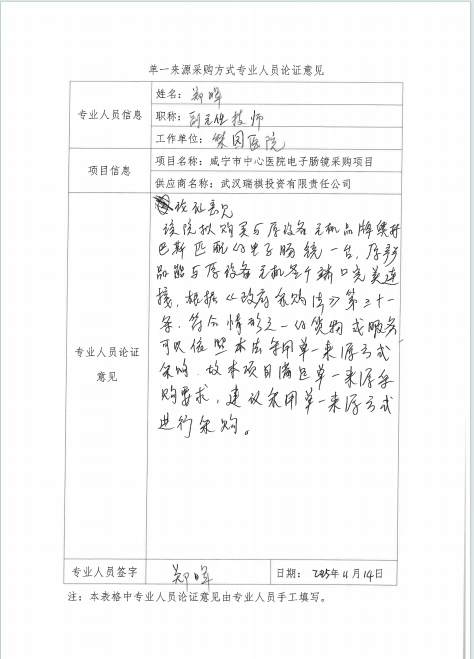 单一来源采购方式专业人员论证意见
专业人员信息
姓名：郑晖
职称：副主任技师
工作单位：梓园医院
项目信息
项目名称：咸宁市中心医院电子肠镜采购项目
供应商名称：武汉瑞祺投资有限责任公司
专业人员论证
意见
论证意见
该院拟购买与原设备主机品牌奥林
巴斯匹配的电子肠镜一台，
品能与原设备主机至个端口完美连
接，根据《政府采购法》第三十一
条，符合情形之一的货物或服务
可以依照本法采用单一来源方式
采购，故本项目满足单一来源采
购要求，建议采用单一来源方式
进行采购。
专业人员签字
郑晖
日期：2025年11月14日
注：本表格中专业人员论证意见由专业人员手工填写。